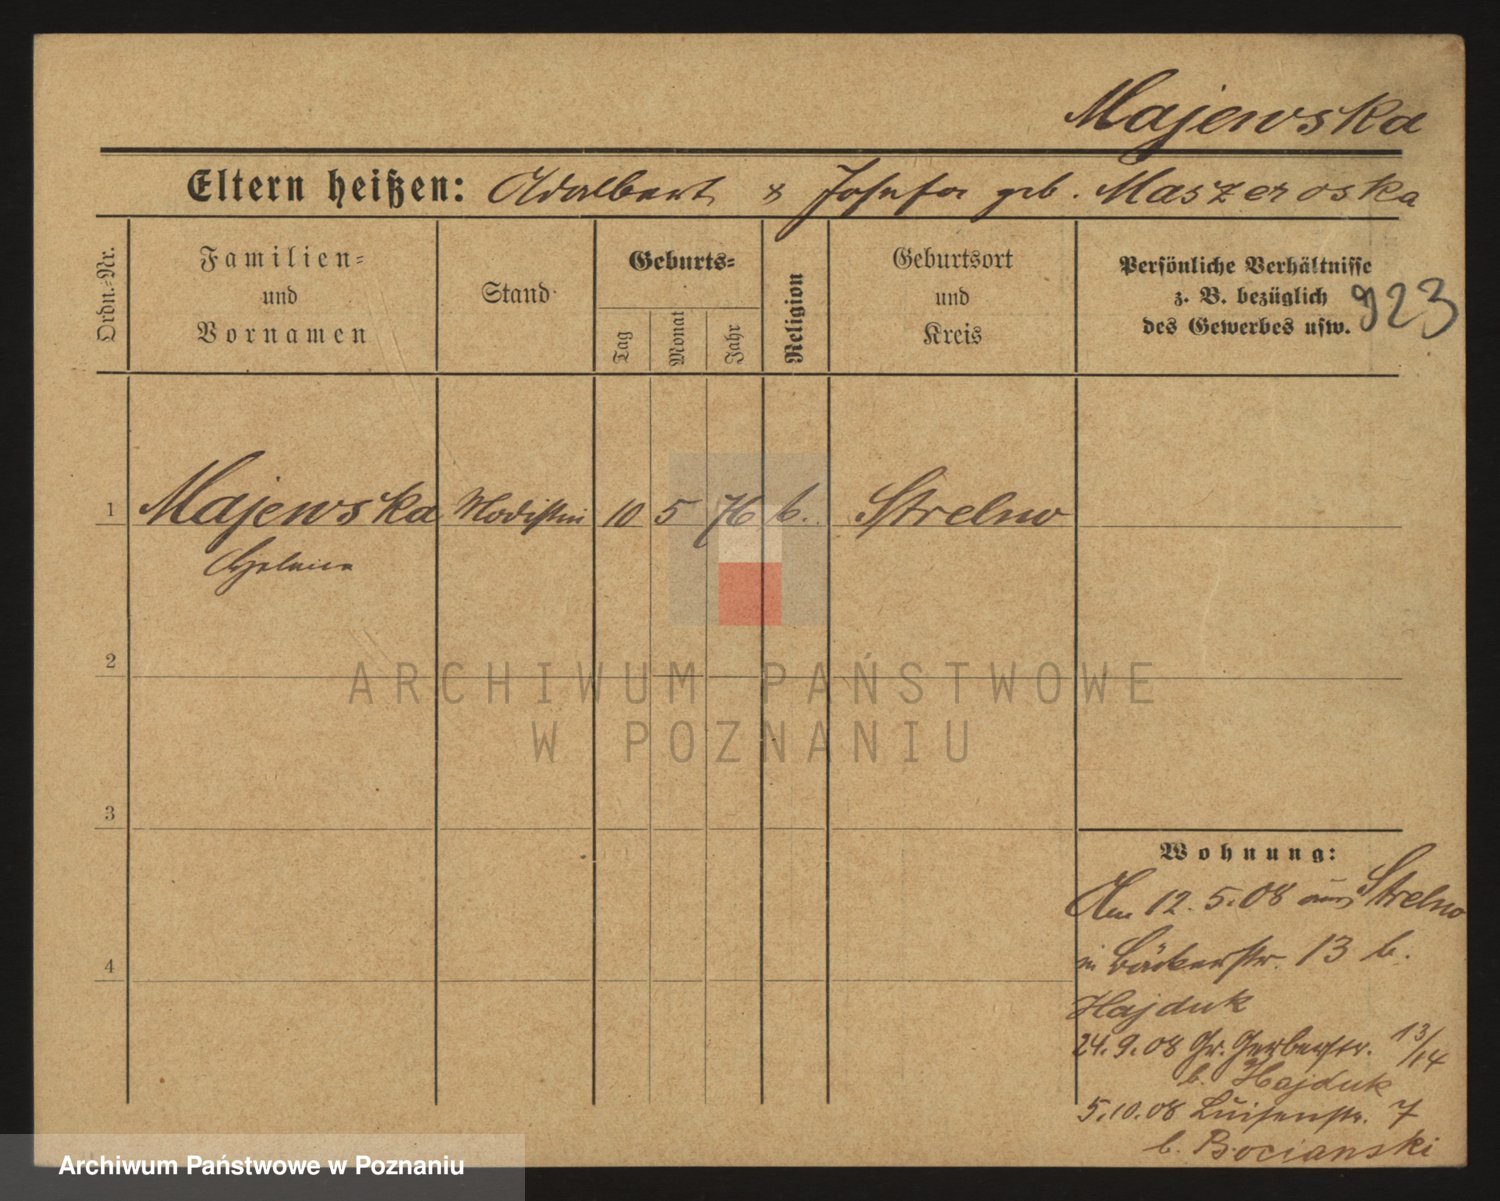 Majewska
Eltern heißen: Adalbert & Josefa geb. Maszeroska
Ordn.-Nr.
Familien-
und
Vornamen
Stand
Geburts-
Tag
Monat
Jahr
Religion
Geburtsort
und
Kreis
Persönliche Verhältnisse
z. B. bezüglich
des Gewerbes usw.
923
1 Majewska Modistin 10 5 76 k. Strelno
2
3
4
Wohnung:
Am 12.5.08 aus Strelno
in Bäckerstr. 13 b.
Hajduk
24.9.08 Gr. Gerberstr. 13/14
b. Hajduk
5.10.08 Luisenstr. 7
b. Bocianski
ARCHIWUM PAŃSTWOWE
W POZNANIU
Archiwum Państwowe w Poznaniu